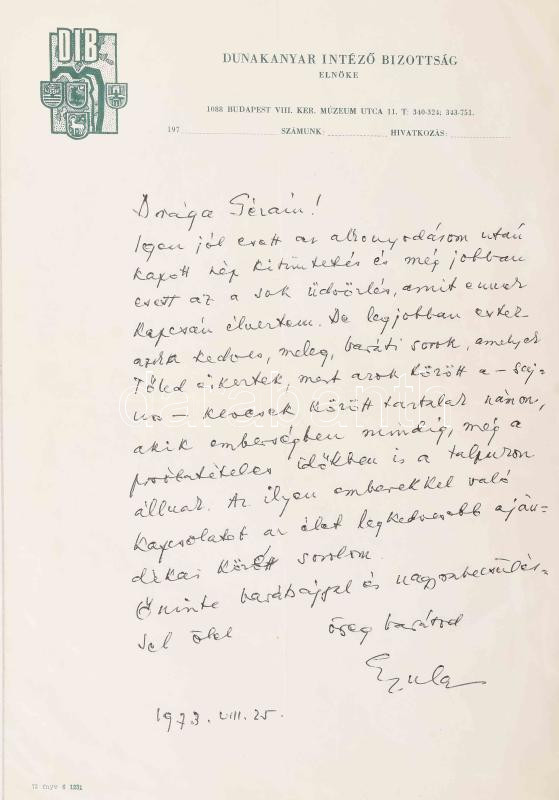 DIB
DUNAKANYAR INTÉZŐ BIZOTTSÁG
ELNÖKE
1088 BUDAPEST VIII. KER. MÚZEUM UTCA 11. T: 340-324; 343-751.
197 SZÁMUNK: HIVATKOZÁS:
Drága
Igen jól esett az alkonyodásom után
kapott szép kitüntetés és még jobban
esett az a sok üdvözlés, amit ennek
kapcsán élveztem. De legjobban estek
azok a kedves, meleg, baráti sorok, amelyek
Tőled érkeztek, mert azok között a – saj-
nos – kevesek között tartalak számon,
akik emberségben mindig, még a
próbatételes időkben is a talpukon
állnak. Az ilyen emberekkel való
kapcsolatot az élet legkedvesebb aján-
dékai közé sorolom.
Őszinte barátsággal és nagyrabecsülés-
sel ölel öreg barátod
Gyula
1973. VIII. 25.
darabanth
72 fnyv 6 1231